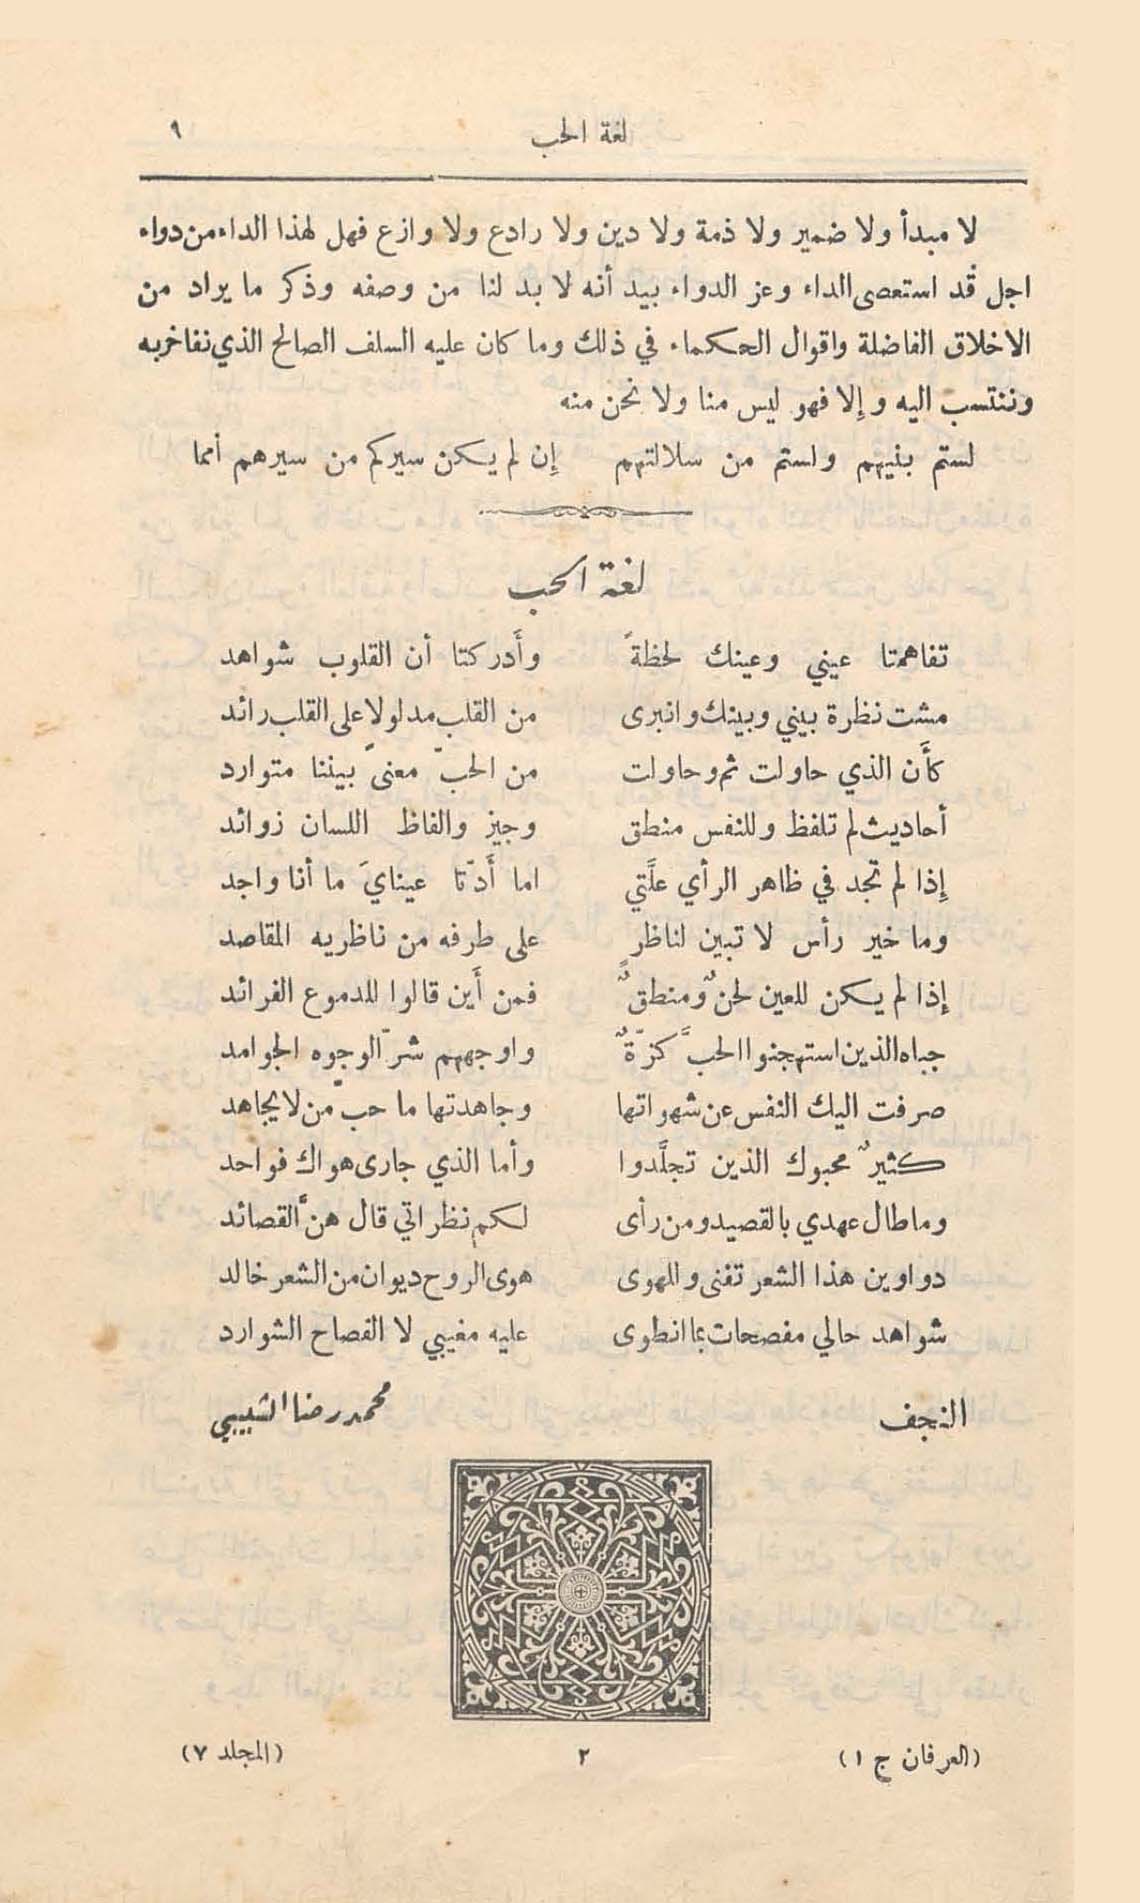 لغة الحب ٩
لا مبدأ ولا ضمير ولا ذمة ولا دين ولا رادع ولا وازع فهل لهذا الداء من دواء
اجل قد استعصى الداء وعز الدواء بيد أنه لا بد لنا من وصفه وذكر ما يراد من
الاخلاق الفاضلة واقوال الحكماء في ذلك وما كان عليه السلف الصالح الذي نفاخر به
وننتسب اليه وإلا فهو ليس منا ولا نحن منه
لستم بنيهم ولستم من سلالتهم إن لم يكن سيركم من سيرهم أمما
لغة الحب
تفاهمتا عيني وعينك لحظةً وأَدركتا أن القلوب شواهد
مشت نظرة بيني وبينك وانبرى من القلب مدلولا على القلب رائد
كأَن الذي حاولت ثم وحاولت من الحبّ معنىً بيننا متوارد
أحاديث لم تلفظ وللنفس منطق وجيز والفاظ اللسان زوائد
إذا لم تجد في ظاهر الرأي علَّتي اما أَدّتا عينايَ ما أنا واجد
وما خير رأس لا تبين لناظر على طرفه من ناظريه المقاصد
إذا لم يكن للعين لحنٌ ومنطقٌ فمن أَين قالوا للدموع الفرائد
جباه الذين استهجنوا الحبَّ كزّةٌ واوجههم شرّ الوجوه الجوامد
صرفت اليك النفس عن شهواتها وجاهدتها ما حبّ من لا يجاهد
كثيرٌ محبوك الذين تجلَّدوا وأما الذي جارى هواك فواحد
وما طال عهدي بالقصيد ومن رأى لكم نظراتي قال هنَّ القصائد
دواوين هذا الشعر تفنى وللهوى هوى الروح ديوان من الشعر خالد
شواهد حالي مفصحات بما انطوى عليه مغيبي لا الفصاح الشوارد
النجف محمد رضا الشبيبي
(العرفان ج ١) ٢ (المجلد ٧)